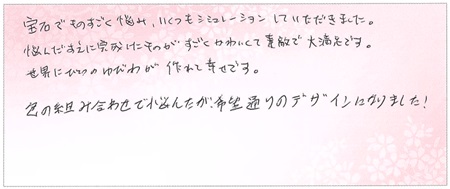 宝石でものすごく悩み、いくつもシミュレーションしていただきました。
悩んだすえに完成したものがすごくかわいくて素敵で大満足です。
世界にひとつのゆびわが作れて幸せです。
色の組み合わせで悩んだが、希望通りのデザインになりました!